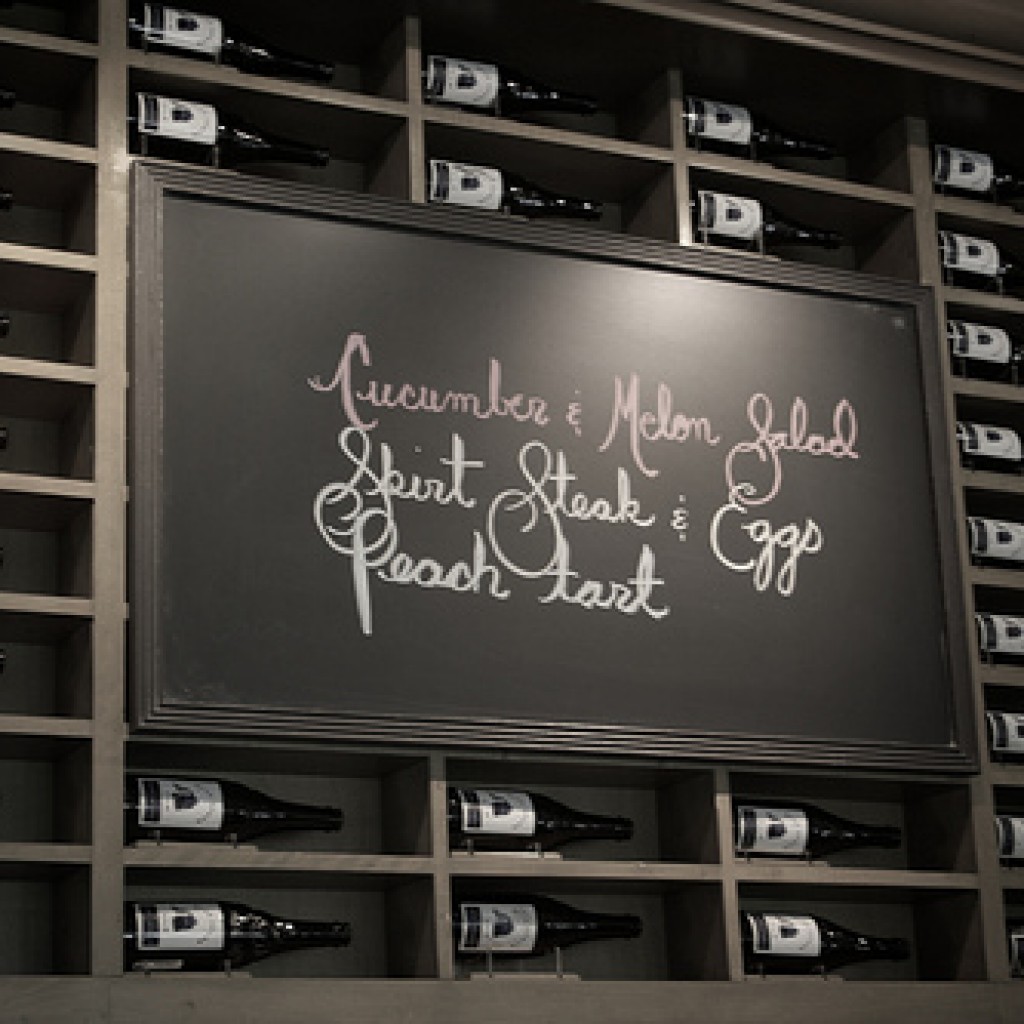 Cucumber & Melon Salad
Skirt Steak & Eggs
Peach tart